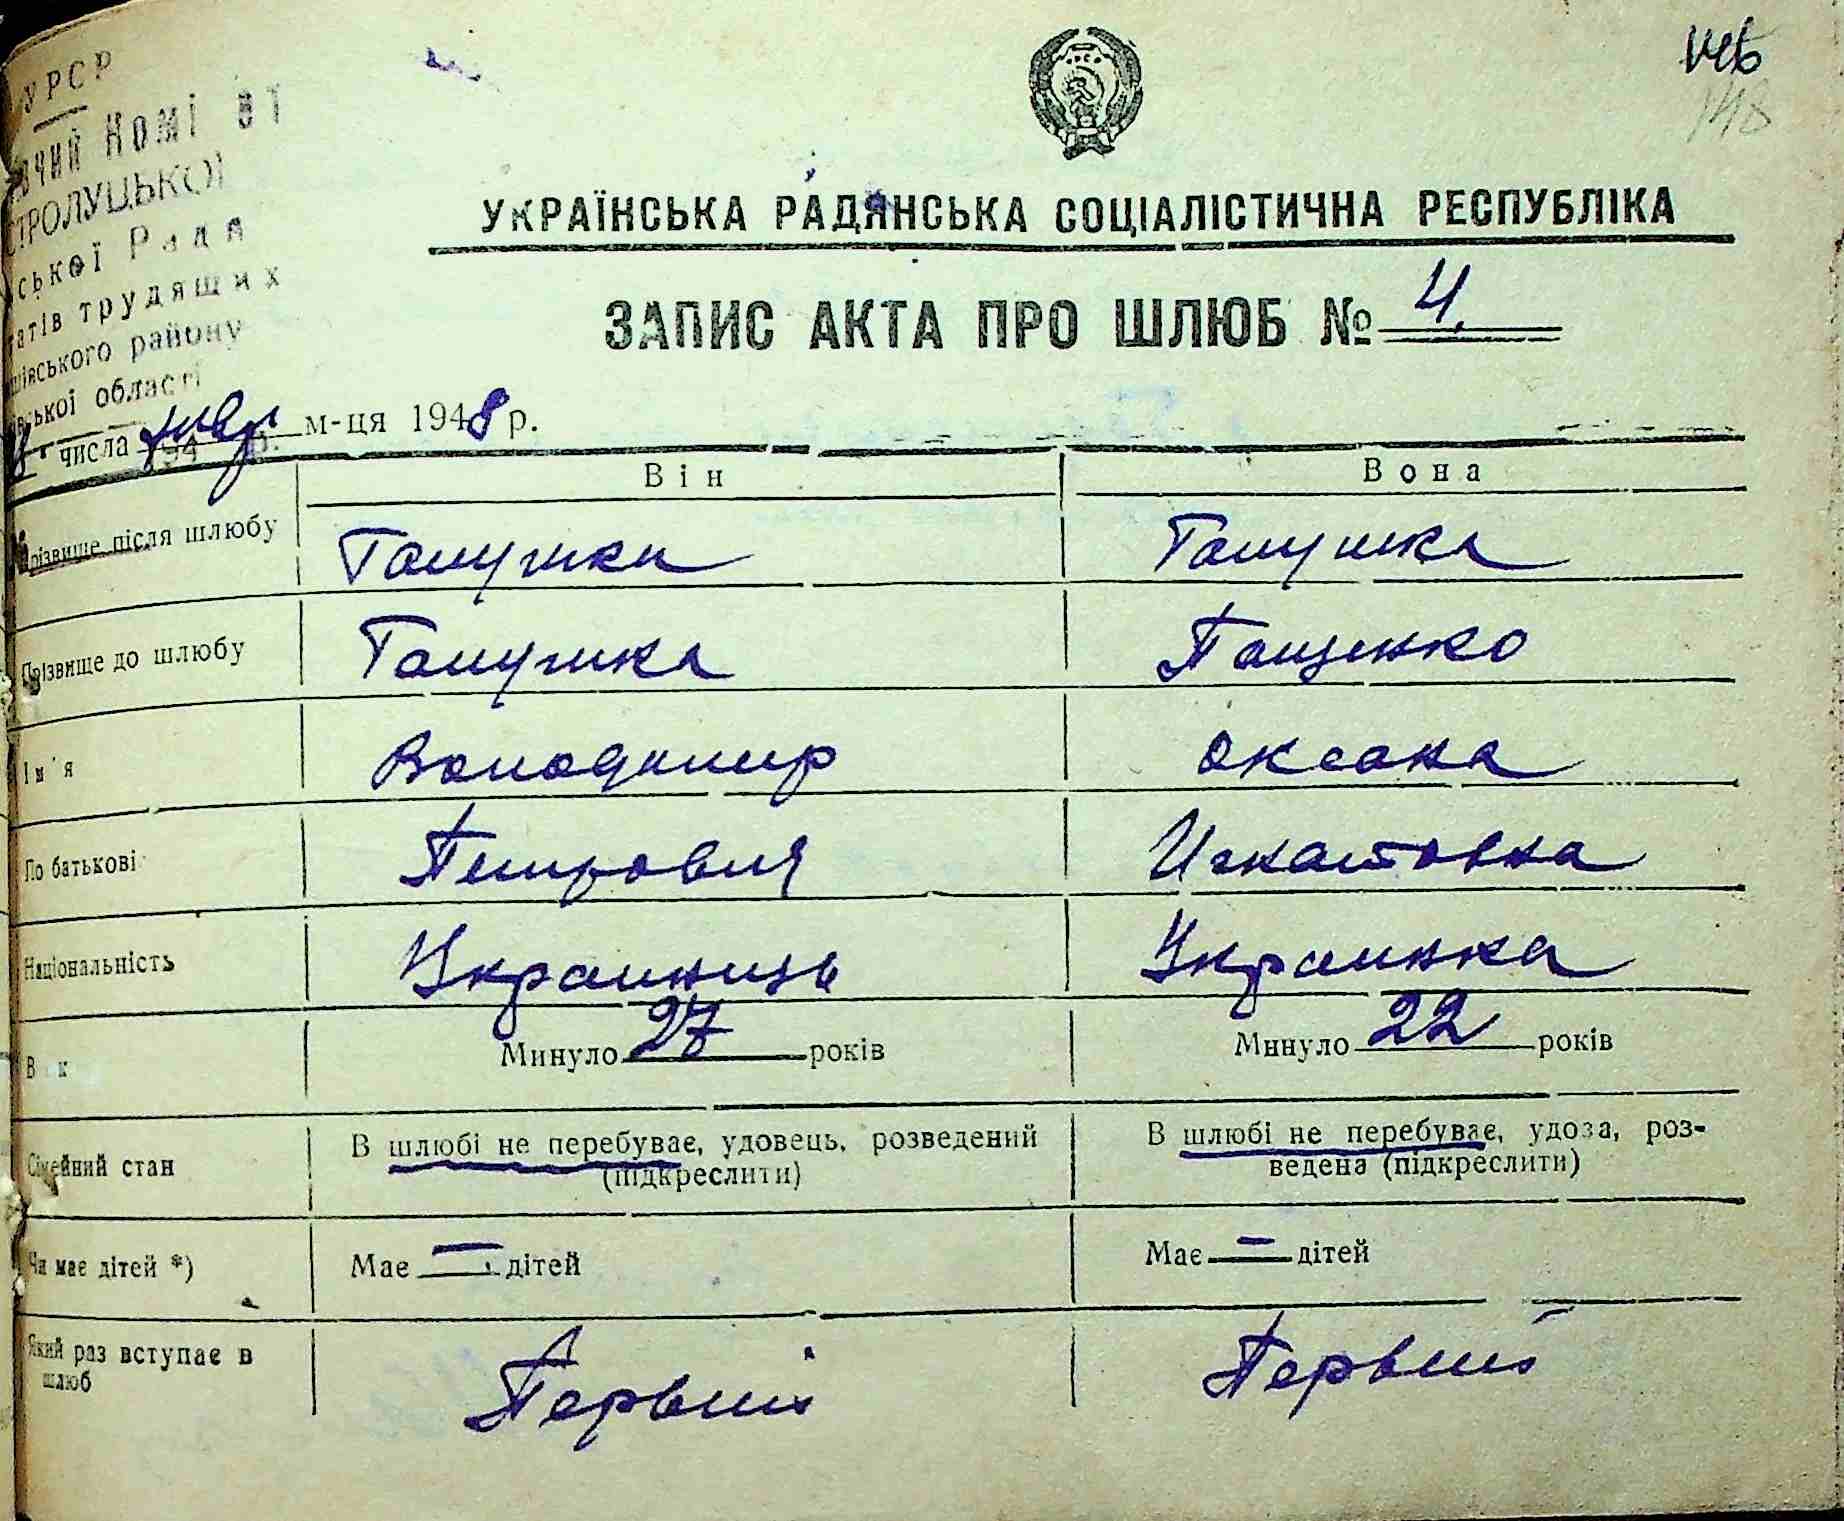 УРСР
вчий Комі ет
СТРОЛУЦЬКОЇ
ської Рада
атів трудящих
шівського району
ської області
146
148
УКРАЇНСЬКА РАДЯНСЬКА СОЦІАЛІСТИЧНА РЕСПУБЛІКА
ЗАПИС АКТА ПРО ШЛЮБ № 4.
числа м-ця 1948 р.
Він Вона
Прізвище після шлюбу Галушка Галушка
Прізвище до шлюбу Галушка Пащенко
Ім'я Володимир Оксана
По батькові Петрович Игнатовна
Національність Украинець Украинка
Вік Минуло 27 років Минуло 22 років
Сімейний стан В шлюбі не перебуває, удовець, розведений В шлюбі не перебуває, удова, роз-
(підкреслити) ведена (підкреслити)
Чи має дітей *) Має — дітей Має — дітей
Який раз вступає в Первый Первый
шлюб